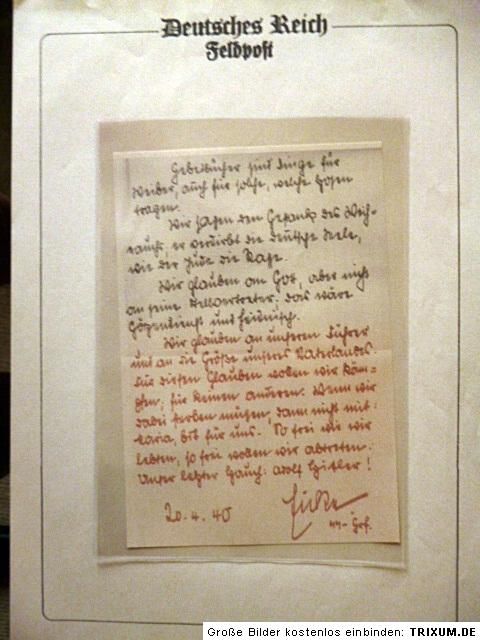 Deutsches Reich
Feldpost
Gebetbücher sind Dinge für
Weiber, auch für solche, welche Hosen
tragen.
Wir hassen den Gestank des Weih-
rauchs, er verdirbt die deutsche Seele,
wie der Jude die Rasse.
Wir glauben an Gott, aber nicht
an seine Stellvertreter, das wäre
Götzendienst und heidnisch.
Wir glauben an unseren Führer
und an die Größe unseres Vaterlandes.
Für diesen Glauben wollen wir käm-
pfen, für keinen anderen. Wenn wir
dabei sterben müssen, dann nicht mit:
"Maria, bitt für uns." So frei wie wir
lebten, so frei wollen wir abtreten.
Unser letzter Hauch: Adolf Hitler!
20.4.40
Eicke
SS-Grf.
Große Bilder kostenlos einbinden: TRIXUM.DE